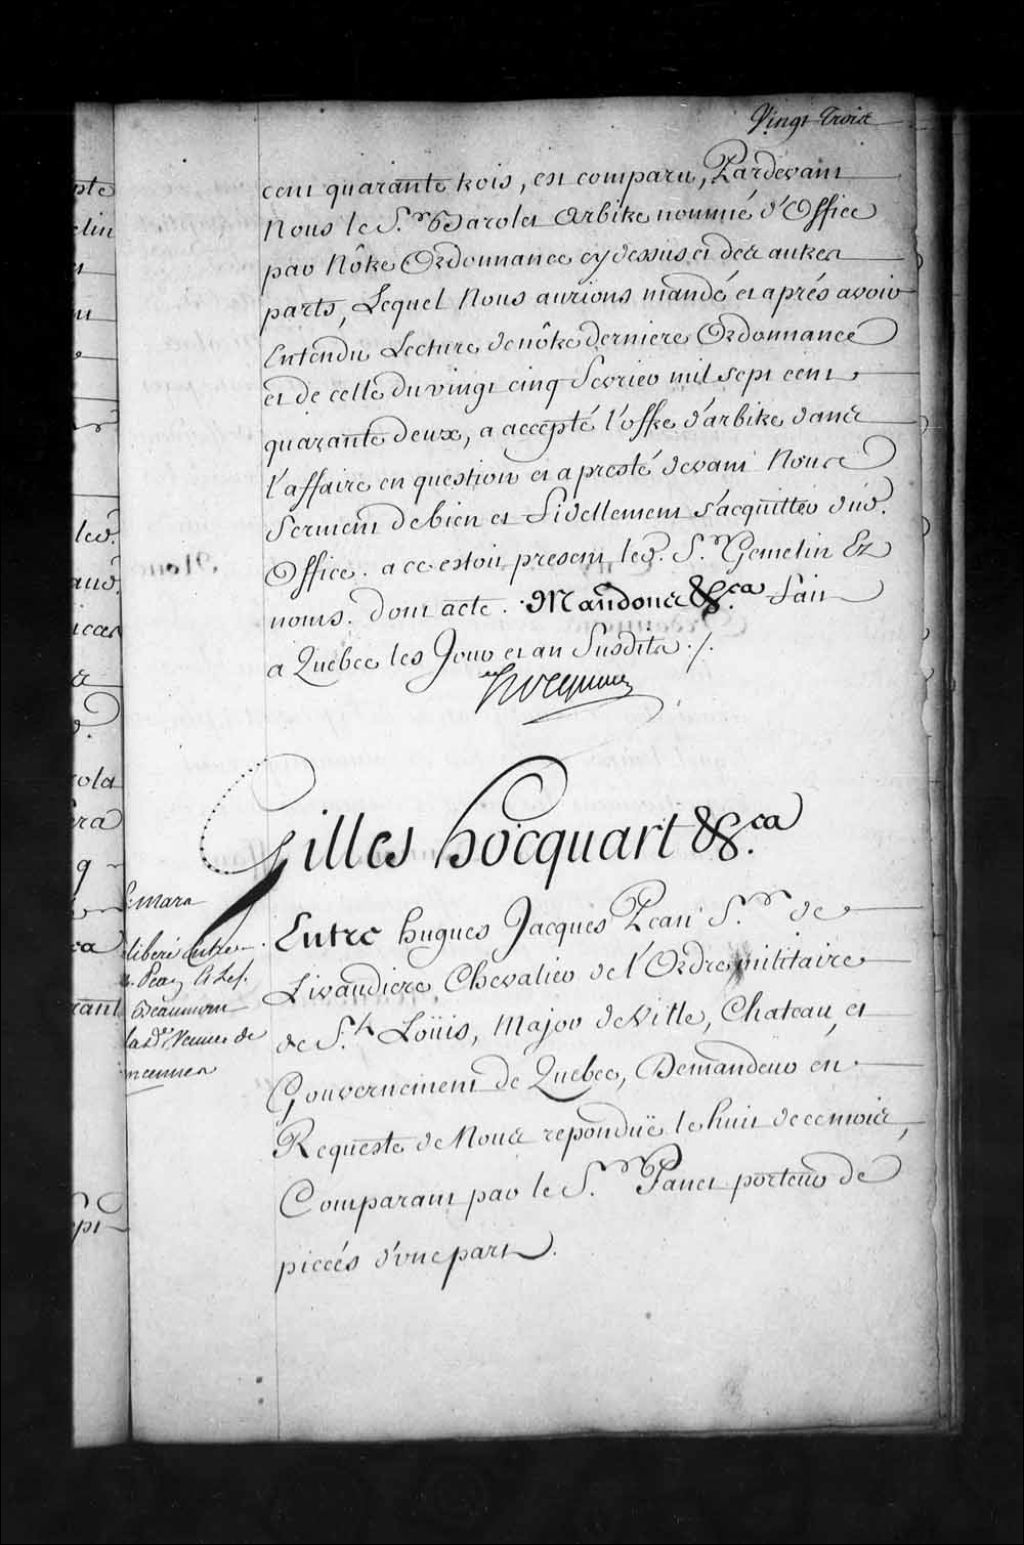 Vingt Trois
cent quarante trois, est comparu, Pardevant
Nous le S.r Barolet Arbitre nommé d'Office
par Nôtre Ordonnance cy dessus et des autres
parts, Lequel Nous aurions mandé et aprés avoir
Entendu Lecture de nôtre derniere Ordonnance
et de celle du vingt cinq Fevrier mil sept cent
quarante deux, a accepté l'offre d'arbitre dans
l'affaire en question et a presté devant Nous
Serment de bien et Fidellement s'acquitter dud.
Office. a ce estoit present led. S.r Gemelin Ez
noms. dont acte. Mandons &c.a Fait
a Quebec les Jour et an Susdits ./.
Hocquart
Gilles hocquart &c.a
mara
libéré Entre
Pean
Beaumon
la d.e Veuve de
Entre hugues Jacques Pean S.r de
Livaudiere Chevalier de l'Ordre militaire
de S.t Loüis, Major de Ville, Chateau, et
Gouvernement de Quebec, Demandeur en
Requeste de Nous repondüe le huit de ce mois,
Comparant par le S.r Panet porteur de
pieces d'une part.